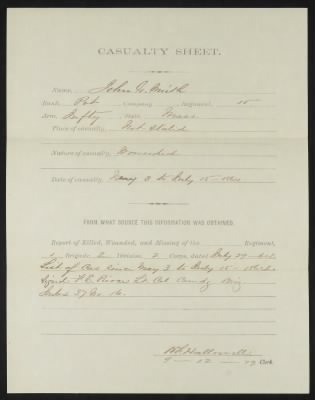 CASUALTY SHEET.
Name, John W. Smith
Rank, Pvt Company Regiment, 15
Arm, Infty State, Mass.
Place of casualty, Not Stated
Nature of casualty, Wounded
Date of casualty, May 3 to July 15
FROM WHAT SOURCE THIS INFORMATION WAS OBTAINED.
Report of Killed, Wounded, and Missing of the Regiment,
1 Brigade 2 Division 2 Corps, dated July 29
List of Cas since May 3 to July 15
Lt Col Comdg Brig
Clerk.